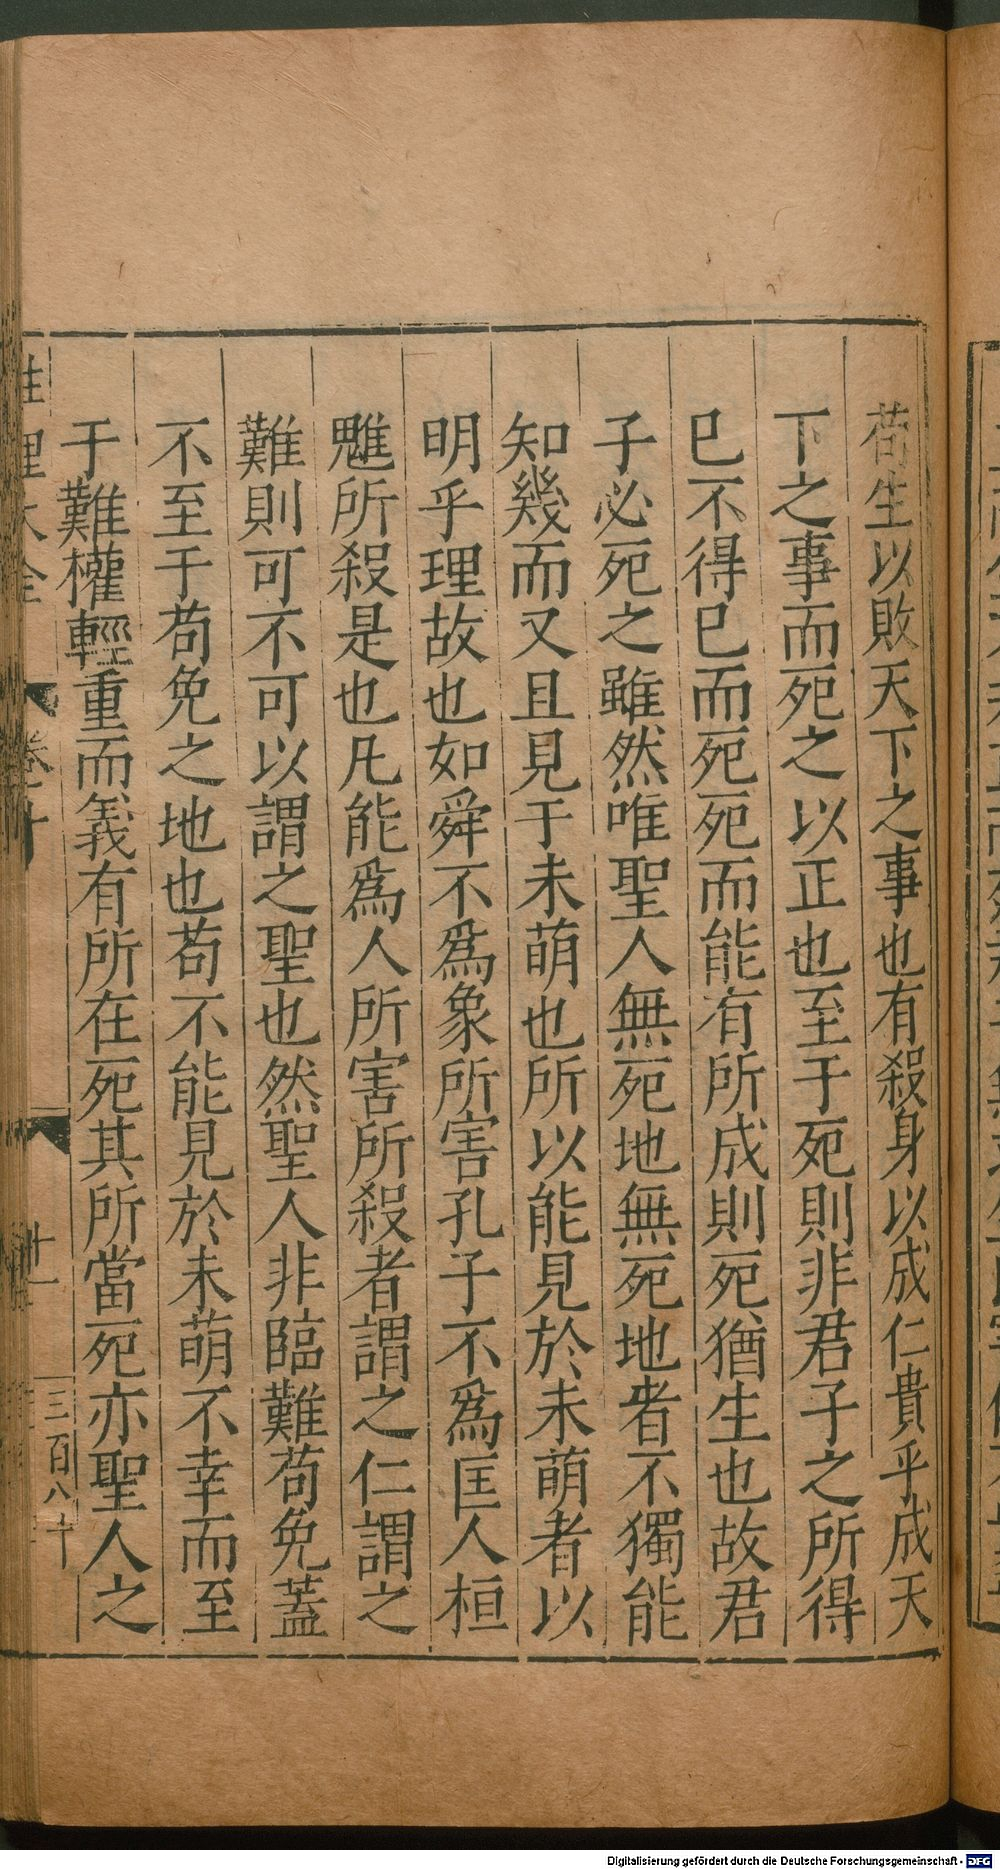 苟生以敗天下之事也有殺身以成仁貴乎成天
下之事而死之以正也至于死則非君子之所得
已不得已而死死而能有所成則死猶生也故君
子必死之雖然唯聖人無死地無死地者不獨能
知幾而又且見于未萌也所以能見於未萌者以
明乎理故也如舜不為象所害孔子不為匡人桓
魋所殺是也凡能為人所害所殺者謂之仁謂之
難則可不可以謂之聖也然聖人非臨難苟免蓋
不至于苟免之地也苟不能見於未萌不幸而至
于難權輕重而義有所在死其所當死亦聖人之
性理大全
卷之十
十一
三百八十
Digitalisierung gefördert durch die Deutsche Forschungsgemeinschaft - DFG